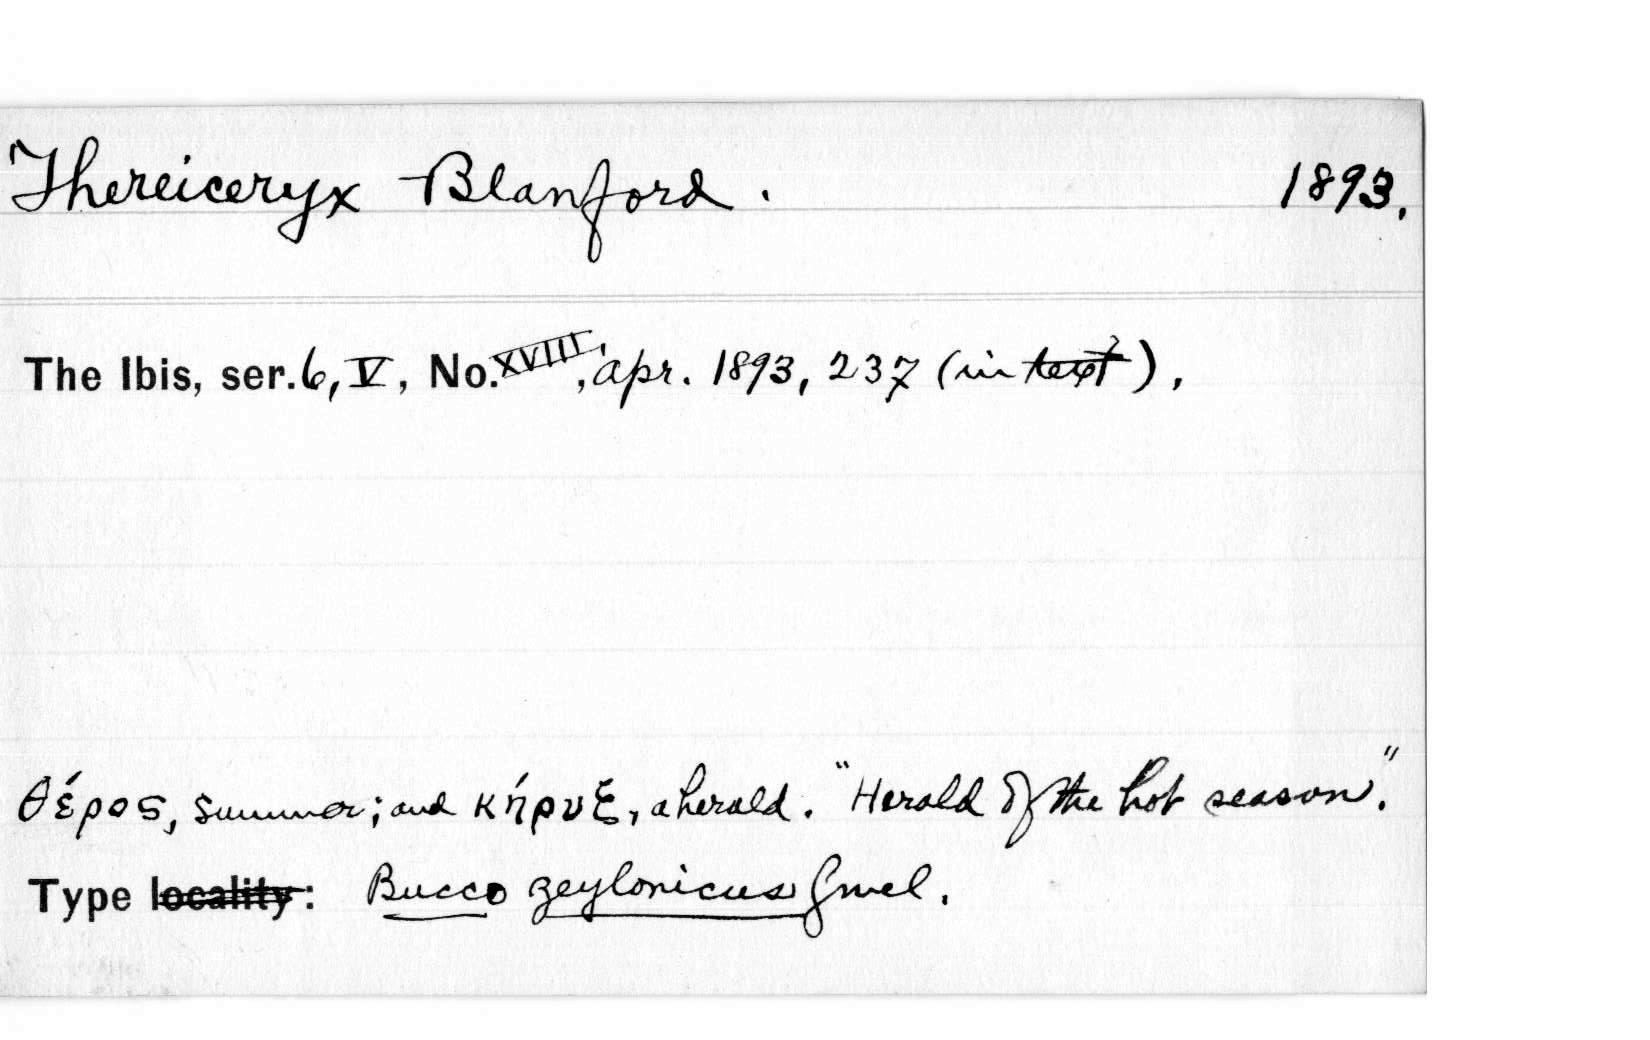 Thereiceryx Blanford. 1893.
The Ibis, ser. 6, V, No. XVIII, Apr. 1893, 237 (in text).
θέρος, summer; and κήρυξ, a herald. "Herald of the hot season."
Type locality: Bucco zeylonicus Gmel.